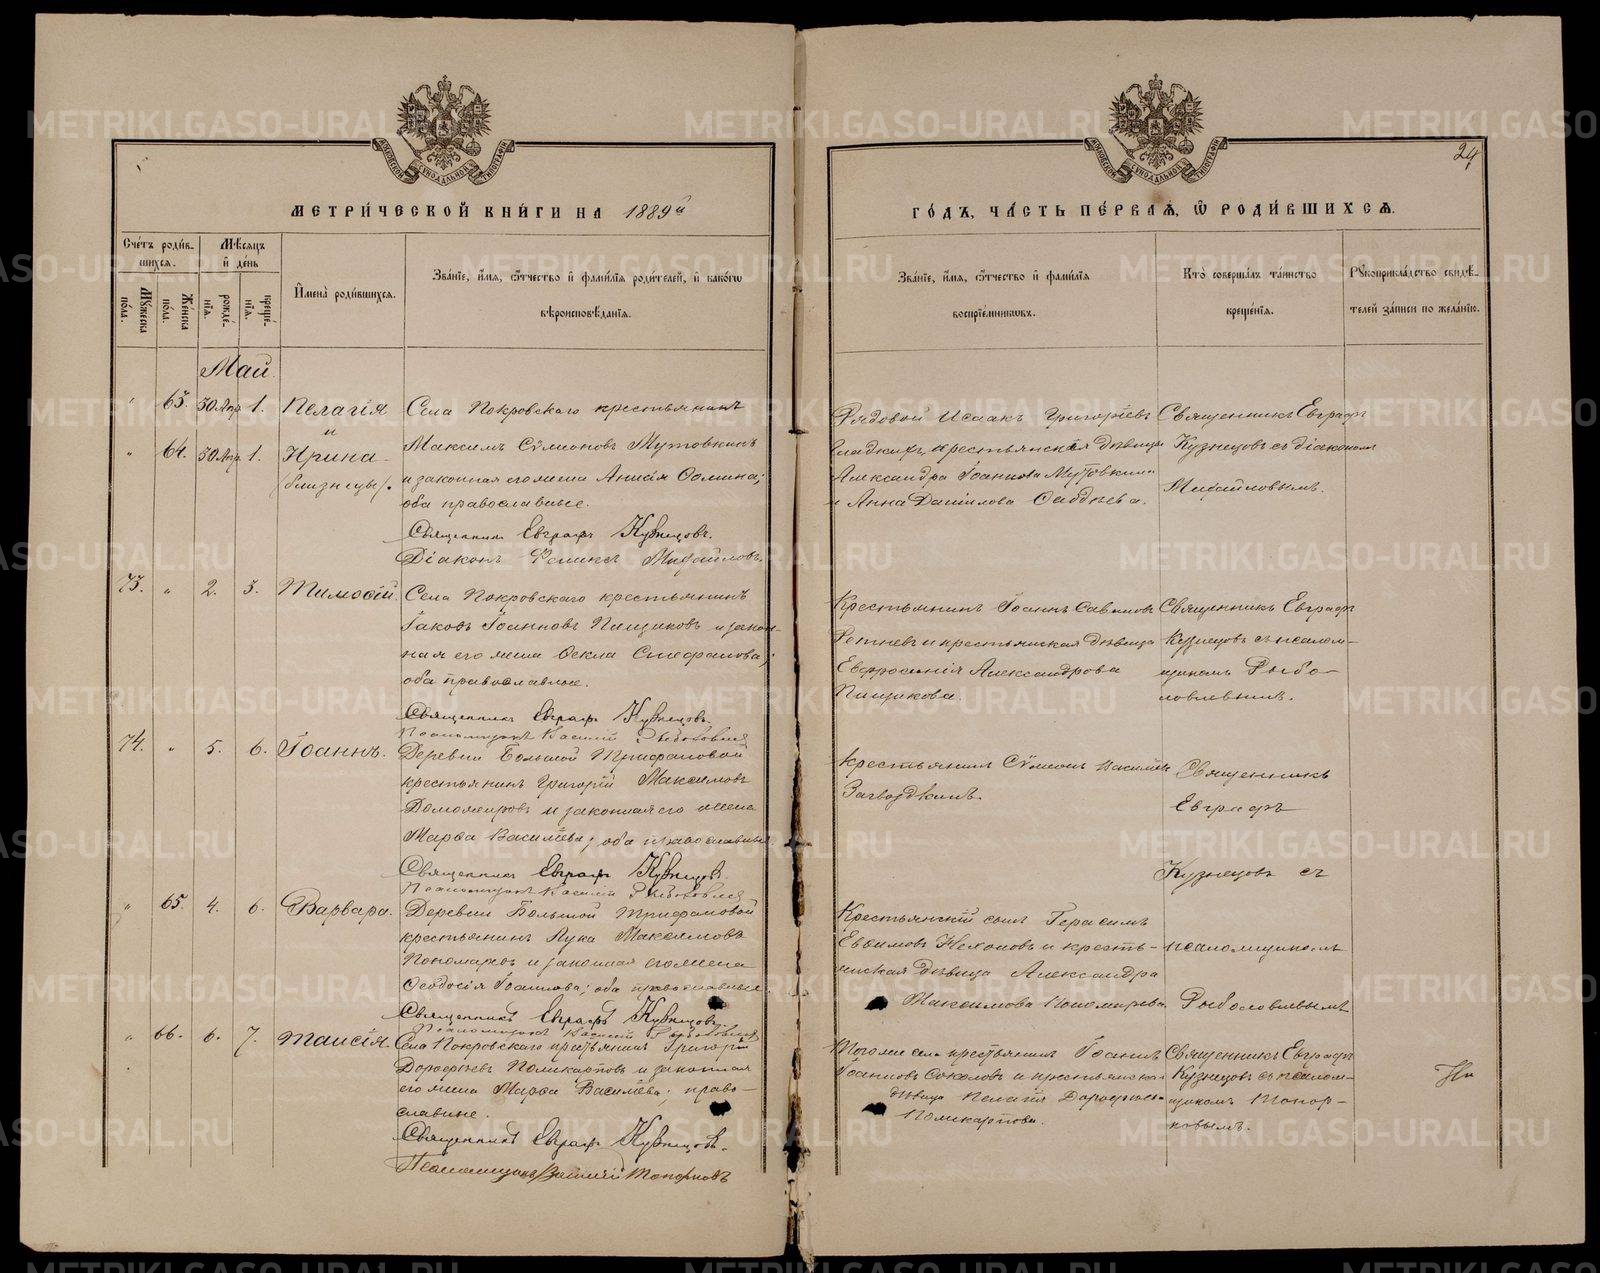 24
МЕТРИЧЕСКОЙ КНИГИ НА 1889й
ГОДЪ, ЧАСТЬ ПЕРВАЯ, Ѡ РОДИВШИХСЯ.
Счетъ родив-
шихся.
Мѣсяцъ
и день
Мужеска
пола.
Женска
пола.
рожде-
нія.
креще-
нія.
Имена родившихся.
Званіе, имя, отчество и фамилія родителей, и какогω
вѣроисповѣданія.
Званіе, имя, отчество и фамилія
воспріемниковъ.
Кто совершалъ таинство
крещенія.
Рукоприкладство свидѣ-
телей записи по желанію.
Май
" 63. 30 Апр. 1. Пелагія
и
" 64. 30 Апр. 1. Ирина
/близнецы/.
Села Покровскаго крестьянинъ
Максимъ Сѵмеоновъ Мутовкинъ
и законная его жена Анисія Ѳомина;
оба православные.
Священникъ Евграфъ Кузнецовъ.
Діаконъ Феликсъ Михайловъ.
Рядовой Исаакъ Григоріевъ
Гладкихъ, крестьянская дѣвица
Александра Іоаннова Мутовкина
и Анна Даніилова
Священникъ Евграфъ
Кузнецовъ съ діакономъ
Михайловымъ.
73. " 2. 3. Тимоѳій.
Села Покровскаго крестьянинъ
Іаковъ Іоанновъ Пищиковъ и закон-
ная его жена Ѳекла Стефанова;
оба православные.
Священникъ Евграфъ Кузнецовъ.
Псаломщикъ Василій Рыболовлевъ
Крестьянинъ Іоаннъ Саввиновъ
и крестьянская дѣвица
Евфросинія Александрова
Пищикова.
Священникъ Евграфъ
Кузнецовъ съ псалом-
щикомъ Рыбо-
ловлевымъ.
74. " 5. 6. Іоаннъ.
Деревни Большой Трифановой
крестьянинъ Григорій Максимовъ
и законная его жена
Марѳа Василіева; оба православные.
Священникъ Евграфъ Кузнецовъ.
Псаломщикъ Василій Рыболовлевъ
Крестьянинъ Сѵмеонъ Василіевъ
Загвоздкинъ.
Священникъ
Евграфъ
Кузнецовъ съ
псаломщикомъ
Рыболовлевымъ
" 65. 4. 6. Варвара.
Деревни Большой Трифановой
крестьянинъ Лука Максимовъ
Пономаревъ и законная его жена
Ѳеодосія Іоаннова; оба православные.
Священникъ Евграфъ Кузнецовъ
Псаломщикъ Василій Рыболовлевъ
Крестьянскій сынъ Герасимъ
Евѳимовъ и кресть-
янская дѣвица Александра
Максимова Пономарева.
" 66. 6. 7. Таисія.
Села Покровскаго крестьянинъ Григорій
Дороѳеевъ Поликарповъ и законная
его жена Марѳа Василіева; право-
славные.
Священникъ Евграфъ Кузнецовъ.
Псаломщикъ Василій Топорковъ
Того же села крестьянинъ Іоаннъ
Іоанновъ Соколовъ и крестьянская
дѣвица Пелагія Дороѳеева
Поликарпова.
Священникъ Евграфъ
Кузнецовъ съ псалом-
щикомъ Топор-
ковымъ.